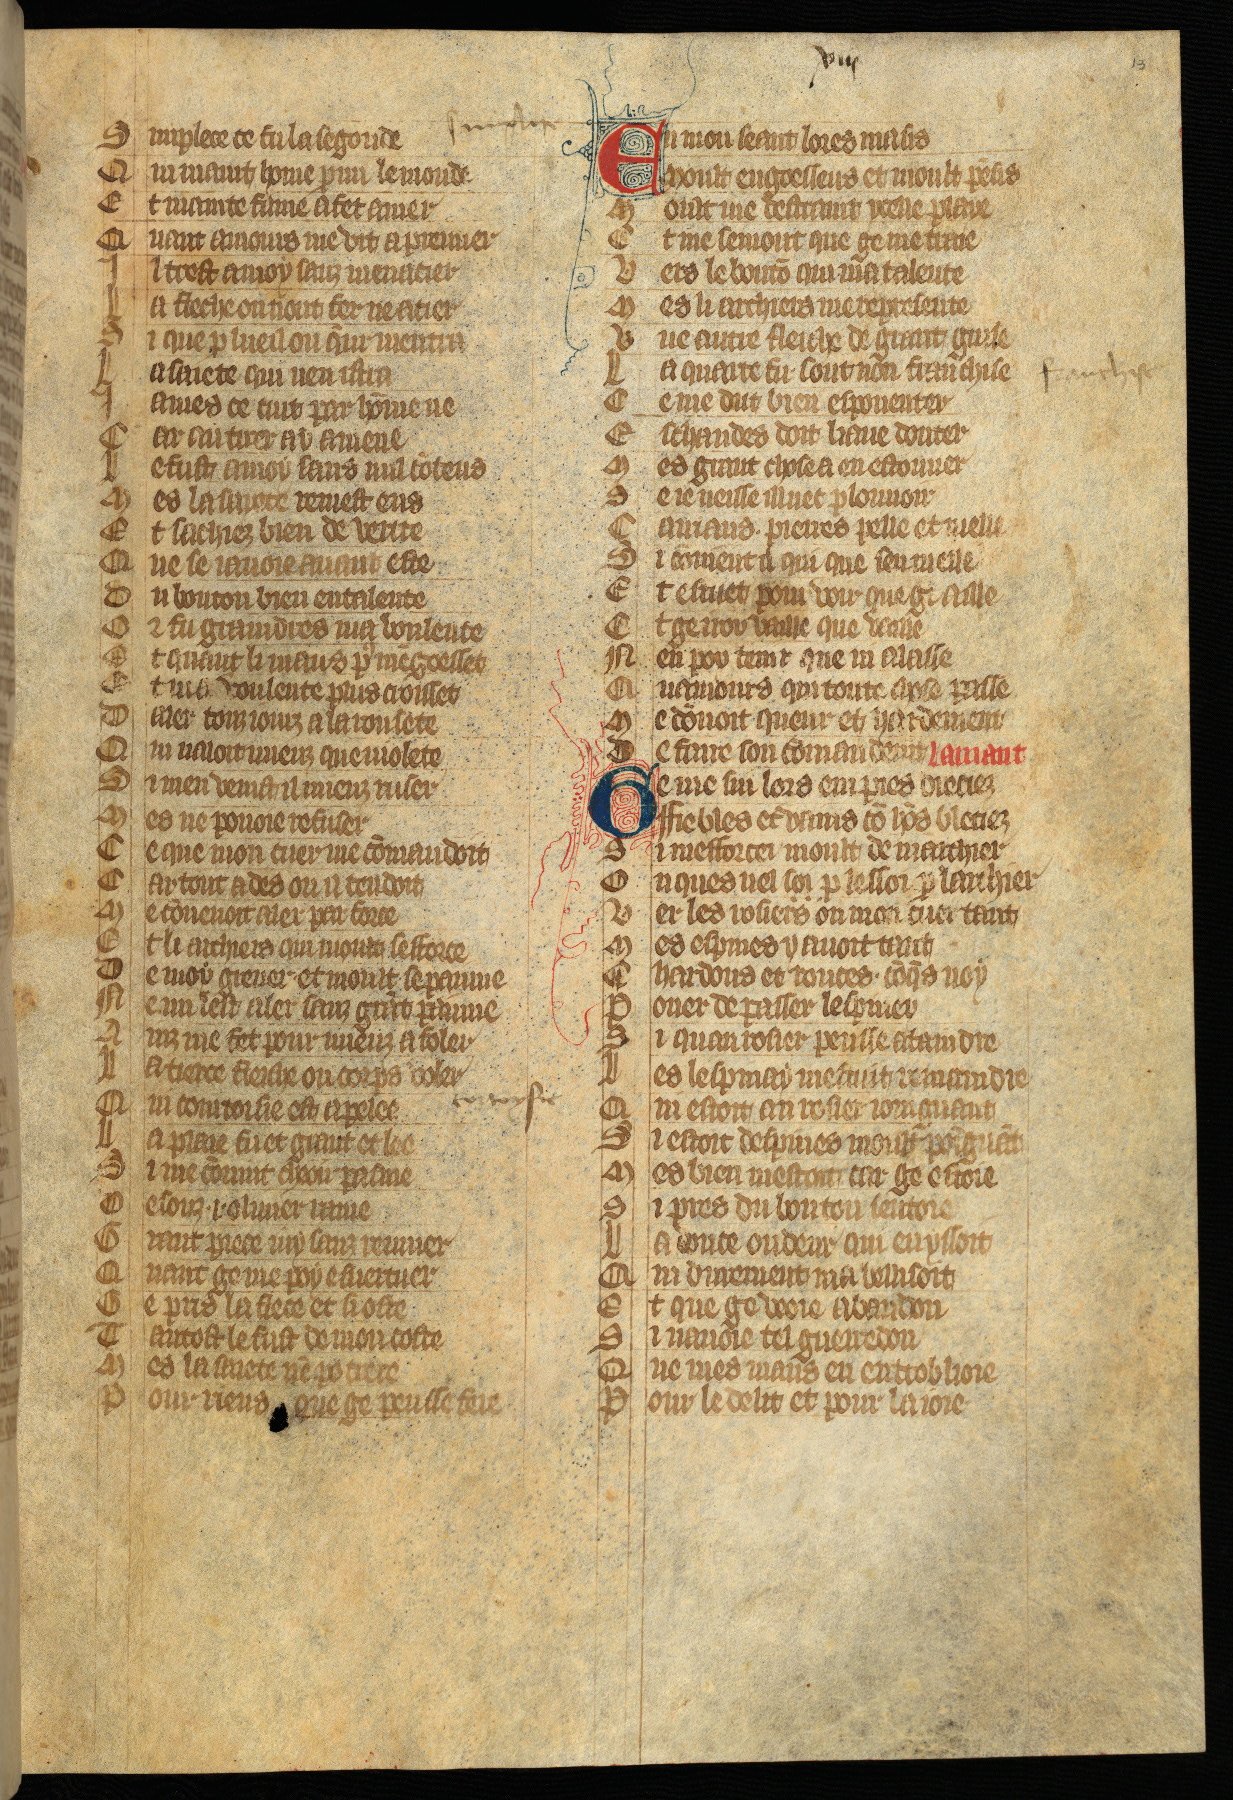 viii
13
simplece
Simplece ce fu la segonde
Qui maint home par mi le monde
Et mainte fame a fet amer
Quant amours me vit aprimer
Il trest a moy sanz menacier
La fleche ou n'out fer ne acier
Si que p lueil ou cuer mentra
La saiete qui nen istra
James ce cuit par home ne
Car au tirer ay amene
Le fust a moy sans nul cotens
Mes la saiete remest ens
Et sachiez bien de verite
Que se iauoie auant este
Du bouton bien entalente
Or fu graindres ma voulente
Et quant li maus p mengoisset
Et ma voulente plus croisset
Daler touz iourz a la rousete
Qui ualoit mieuz que uiolete
Si men uenist il mieuz ruser
Mes ne pouoie refuser
Ce que mon cuer me comandoit
Car tout ades ou il tendoit
Me conuenoit aler par force
Et li archiers qui moult sefforce
De moy greuer et moult se painne
Ne mi lest aler sanz grant painne
Ainz me fet pour mieuz afoler
La tierce fleiche ou corps voler
Qui courtoisie est apelee
courtoysie
La plaie fu et grant et lee
Si me couint cheoir pasme
Desouz .i. oliuier rame
Grant piece iuy sanz remuer
Quant ge me poy esuertuer
Ge pris la flece et si oste
Tantost le fust de mon coste
Mes la saiete ne po trere
Pour riens que ge peusse fere
En mon seant lores massis
Moult engoesseus et moult pensis
Moult me destraint ycelle plaie
Et me semont que ge me traie
Vers le bouto qui ma talente
Mes li archiers me represente
Vne autre fleiche de grant guile
La quarte fu sout non franchise
franchise
Ce me dut bien espouenter
Eschaudes doit iaue douter
Mes grant chose a en estouuer
Se ie ueisse illuec plouuoir
Cariaus pierres pelle et melle
Si coment il qui que sen melle
Et estuet pour voir que gi aille
Et ge noy vaille que vaille
Nen pou tenir que ni alasse
Quamours qui toute chose passe
Me donoit queur et hardement
De faire son comandement Lamant
Ge me sui lors em pies dreciez
Ffiebles et vains co hos bleciez
Si mefforcei moult de marchier
Onques nel soi p lessor p larchier
Ver les rosiers ou mon cuer tant
Mes espines y auoit tant
Chardons et ronces conques noy
Pouer de passer lespinoy
Si quau rosier peusse ataindre
Les lespinay mestuit remaindre
Qui estoit au rosier ioingnant
Si estoit despines moult poignant
Mes bien mestoit car ge estoie
Si pres du bouton sentoie
La douce oudeur qui en yssoit
Qui durement ma belissoit
Et que ge veoie abandon
Si nauoie tel guerredon
Que mes maus en entrobliore
Pour le delit et pour la ioie